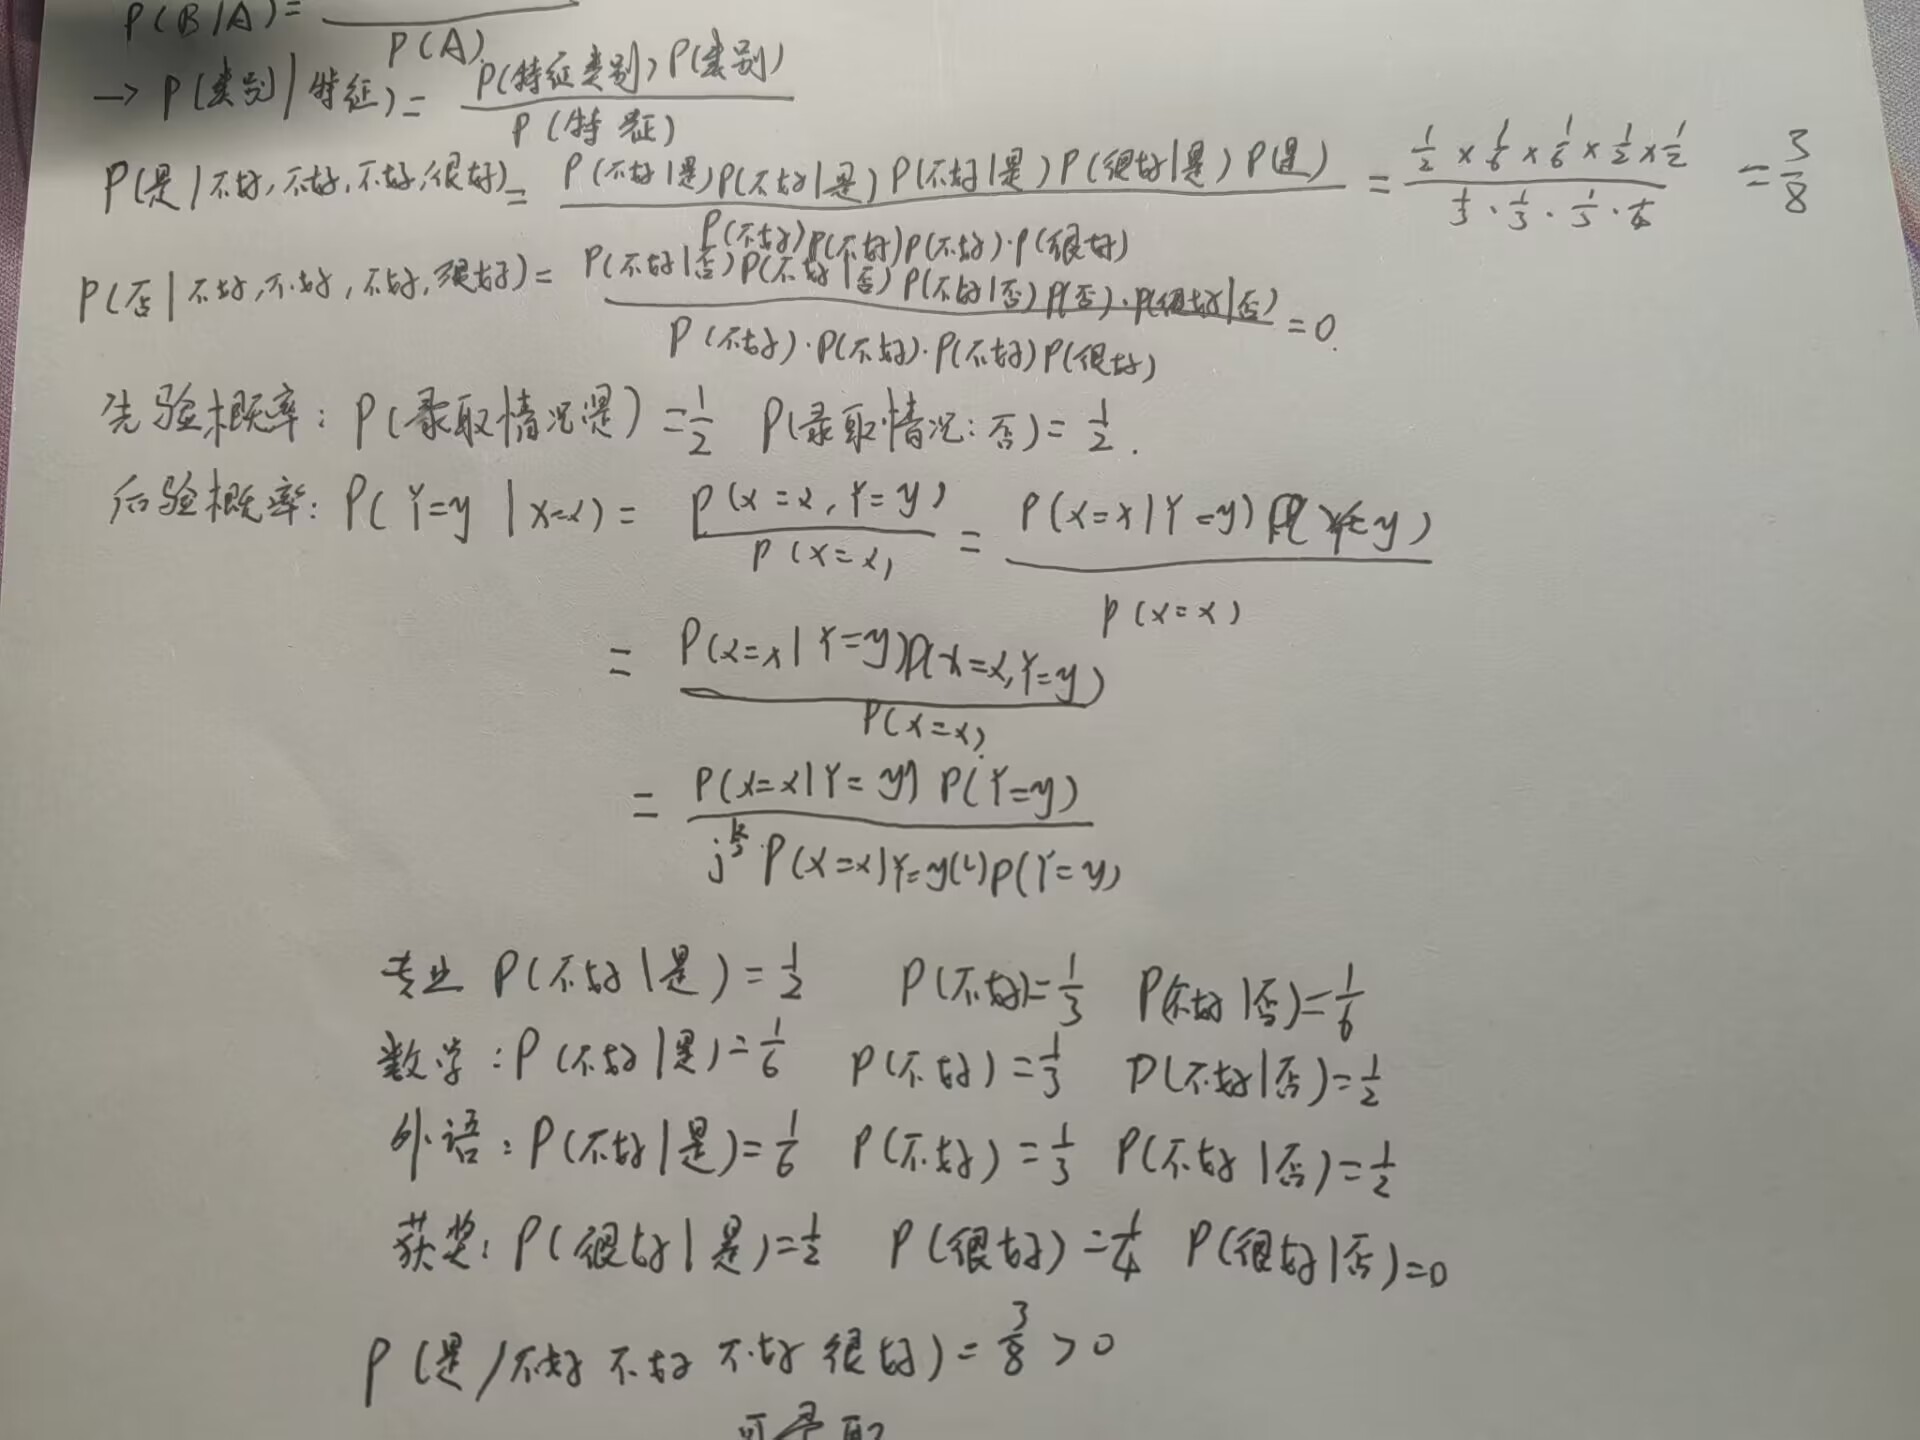 P(B|A)= ―― P(A)
→ P(类别|特征)= P(特征类别)P(类别) / P(特征)
P(是|不好,不好,不好,很好)= P(不好|是)P(不好|是)P(不好|是)P(很好|是)P(是) / P(不好)P(不好)P(不好)·P(很好) = 1/2 × 1/6 × 1/6 × 1/2 × 1/2 / 1/3 · 1/3 · 1/3 · 1/4 = 3/8
P(否|不好,不好,不好,很好)= P(不好|否)P(不好|否)P(不好|否)P(否)·P(很好|否) / P(不好)·P(不好)·P(不好)P(很好) =0.
先验概率: P(录取情况是)=1/2 P(录取情况:否)=1/2.
后验概率: P(Y=y|X=x)= P(X=x,Y=y) / P(X=x) = P(X=x|Y=y)P(Y=y) / P(X=x)
= P(X=x|Y=y)P(X=x,Y=y) / P(X=x)
= P(X=x|Y=y)P(Y=y) / P(X=x|Y=y(i))P(Y=y)
专业 P(不好|是)=1/2 P(不好)=1/3 P(不好|否)=1/6
数学:P(不好|是)=1/6 P(不好)=1/3 P(不好|否)=1/2
外语:P(不好|是)=1/6 P(不好)=1/3 P(不好|否)=1/2
获奖:P(很好|是)=1/2 P(很好)=1/4 P(很好|否)=0
P(是/不好 不好 不好 很好)=3/8>0
可录取